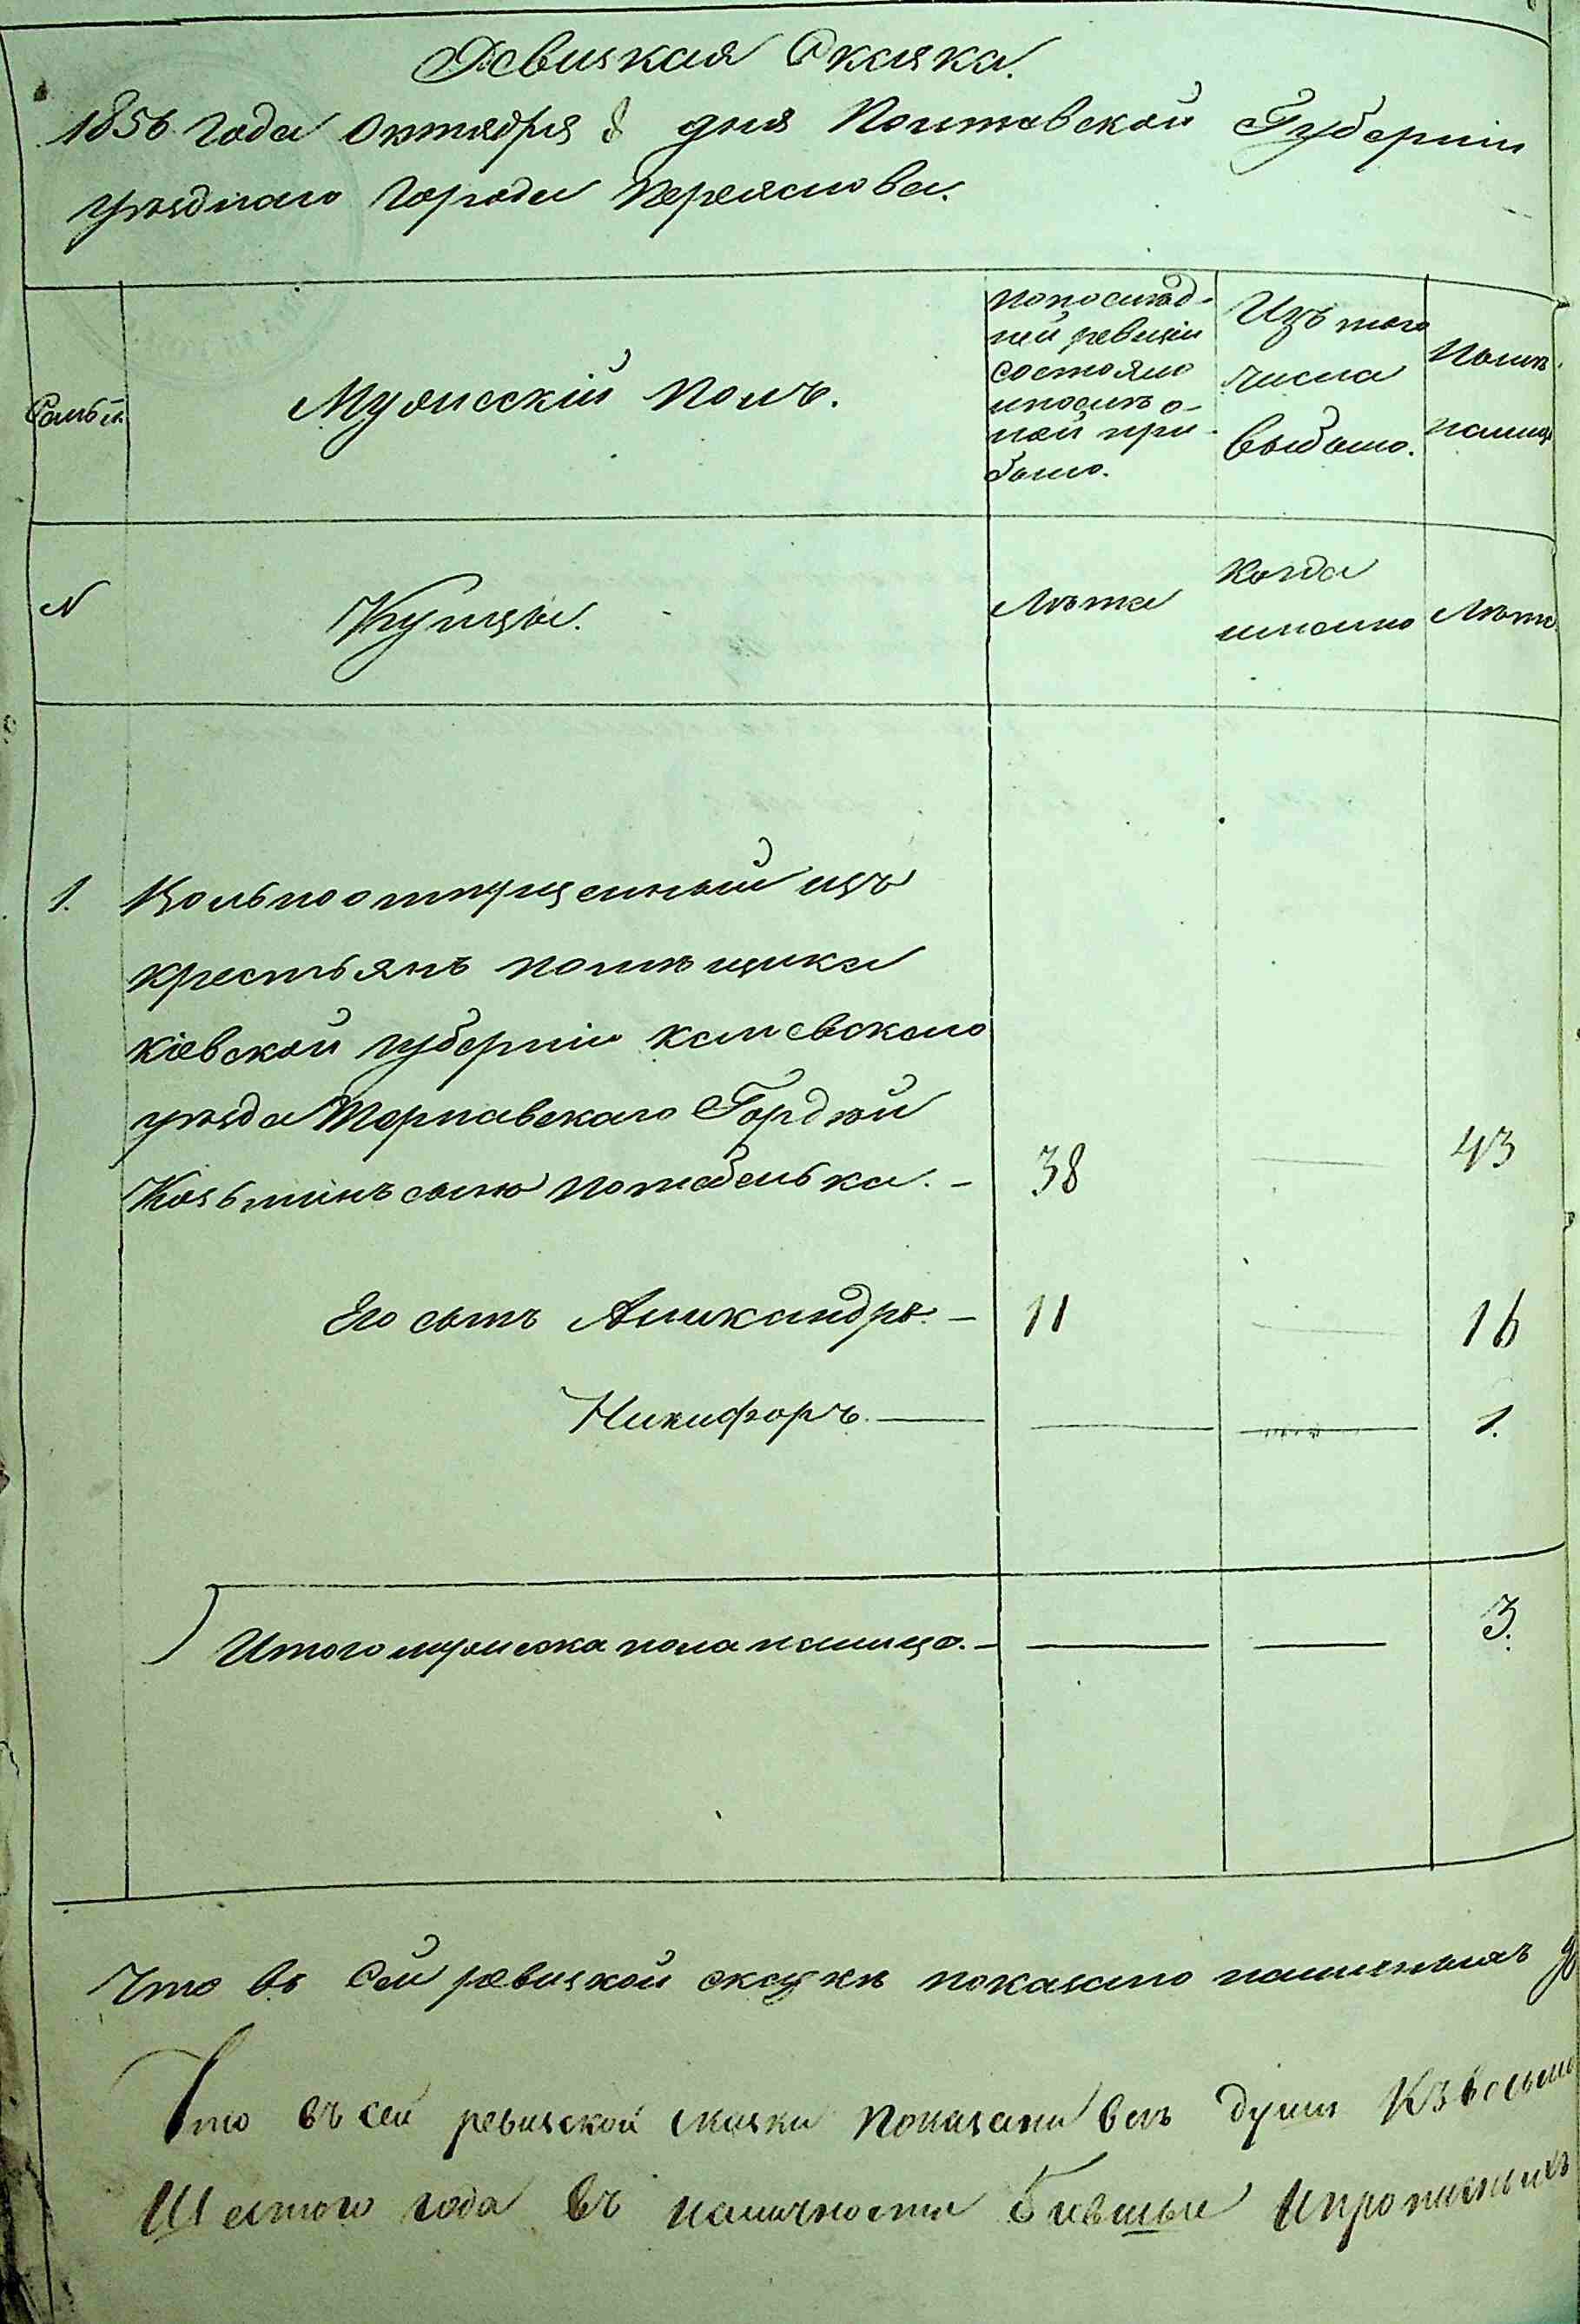 Ревизкая Сказка.
1856 года Октября 8 дня Полтавской Губерніи
уезднаго города Переяслова.
Семьи. Мужесскій Полъ. по послед- ней ревизіи состояло и после о- ной при- было. Изъ того числа выбыло. Нынѣ налицо
N Купцы. Лѣта Когда именно Лѣта
1. Вольноотпущенный изъ
крестьянъ помѣщика
Кіевской губерніи Каневскаго
уезда Тарнавскаго Гордѣй
Козьминъ сынъ 38 — 43
Его сынъ Александръ. — 11 — 16
Никифоръ. — — — 1.
Итого мужеска пола налицо. — — — 3.
Что въ сей ревизкой сказкѣ показано наличныхъ
Что въ сей ревизской сказки показани все души къ восьмо
Шестого года въ наличности бывшые и прописныхъ